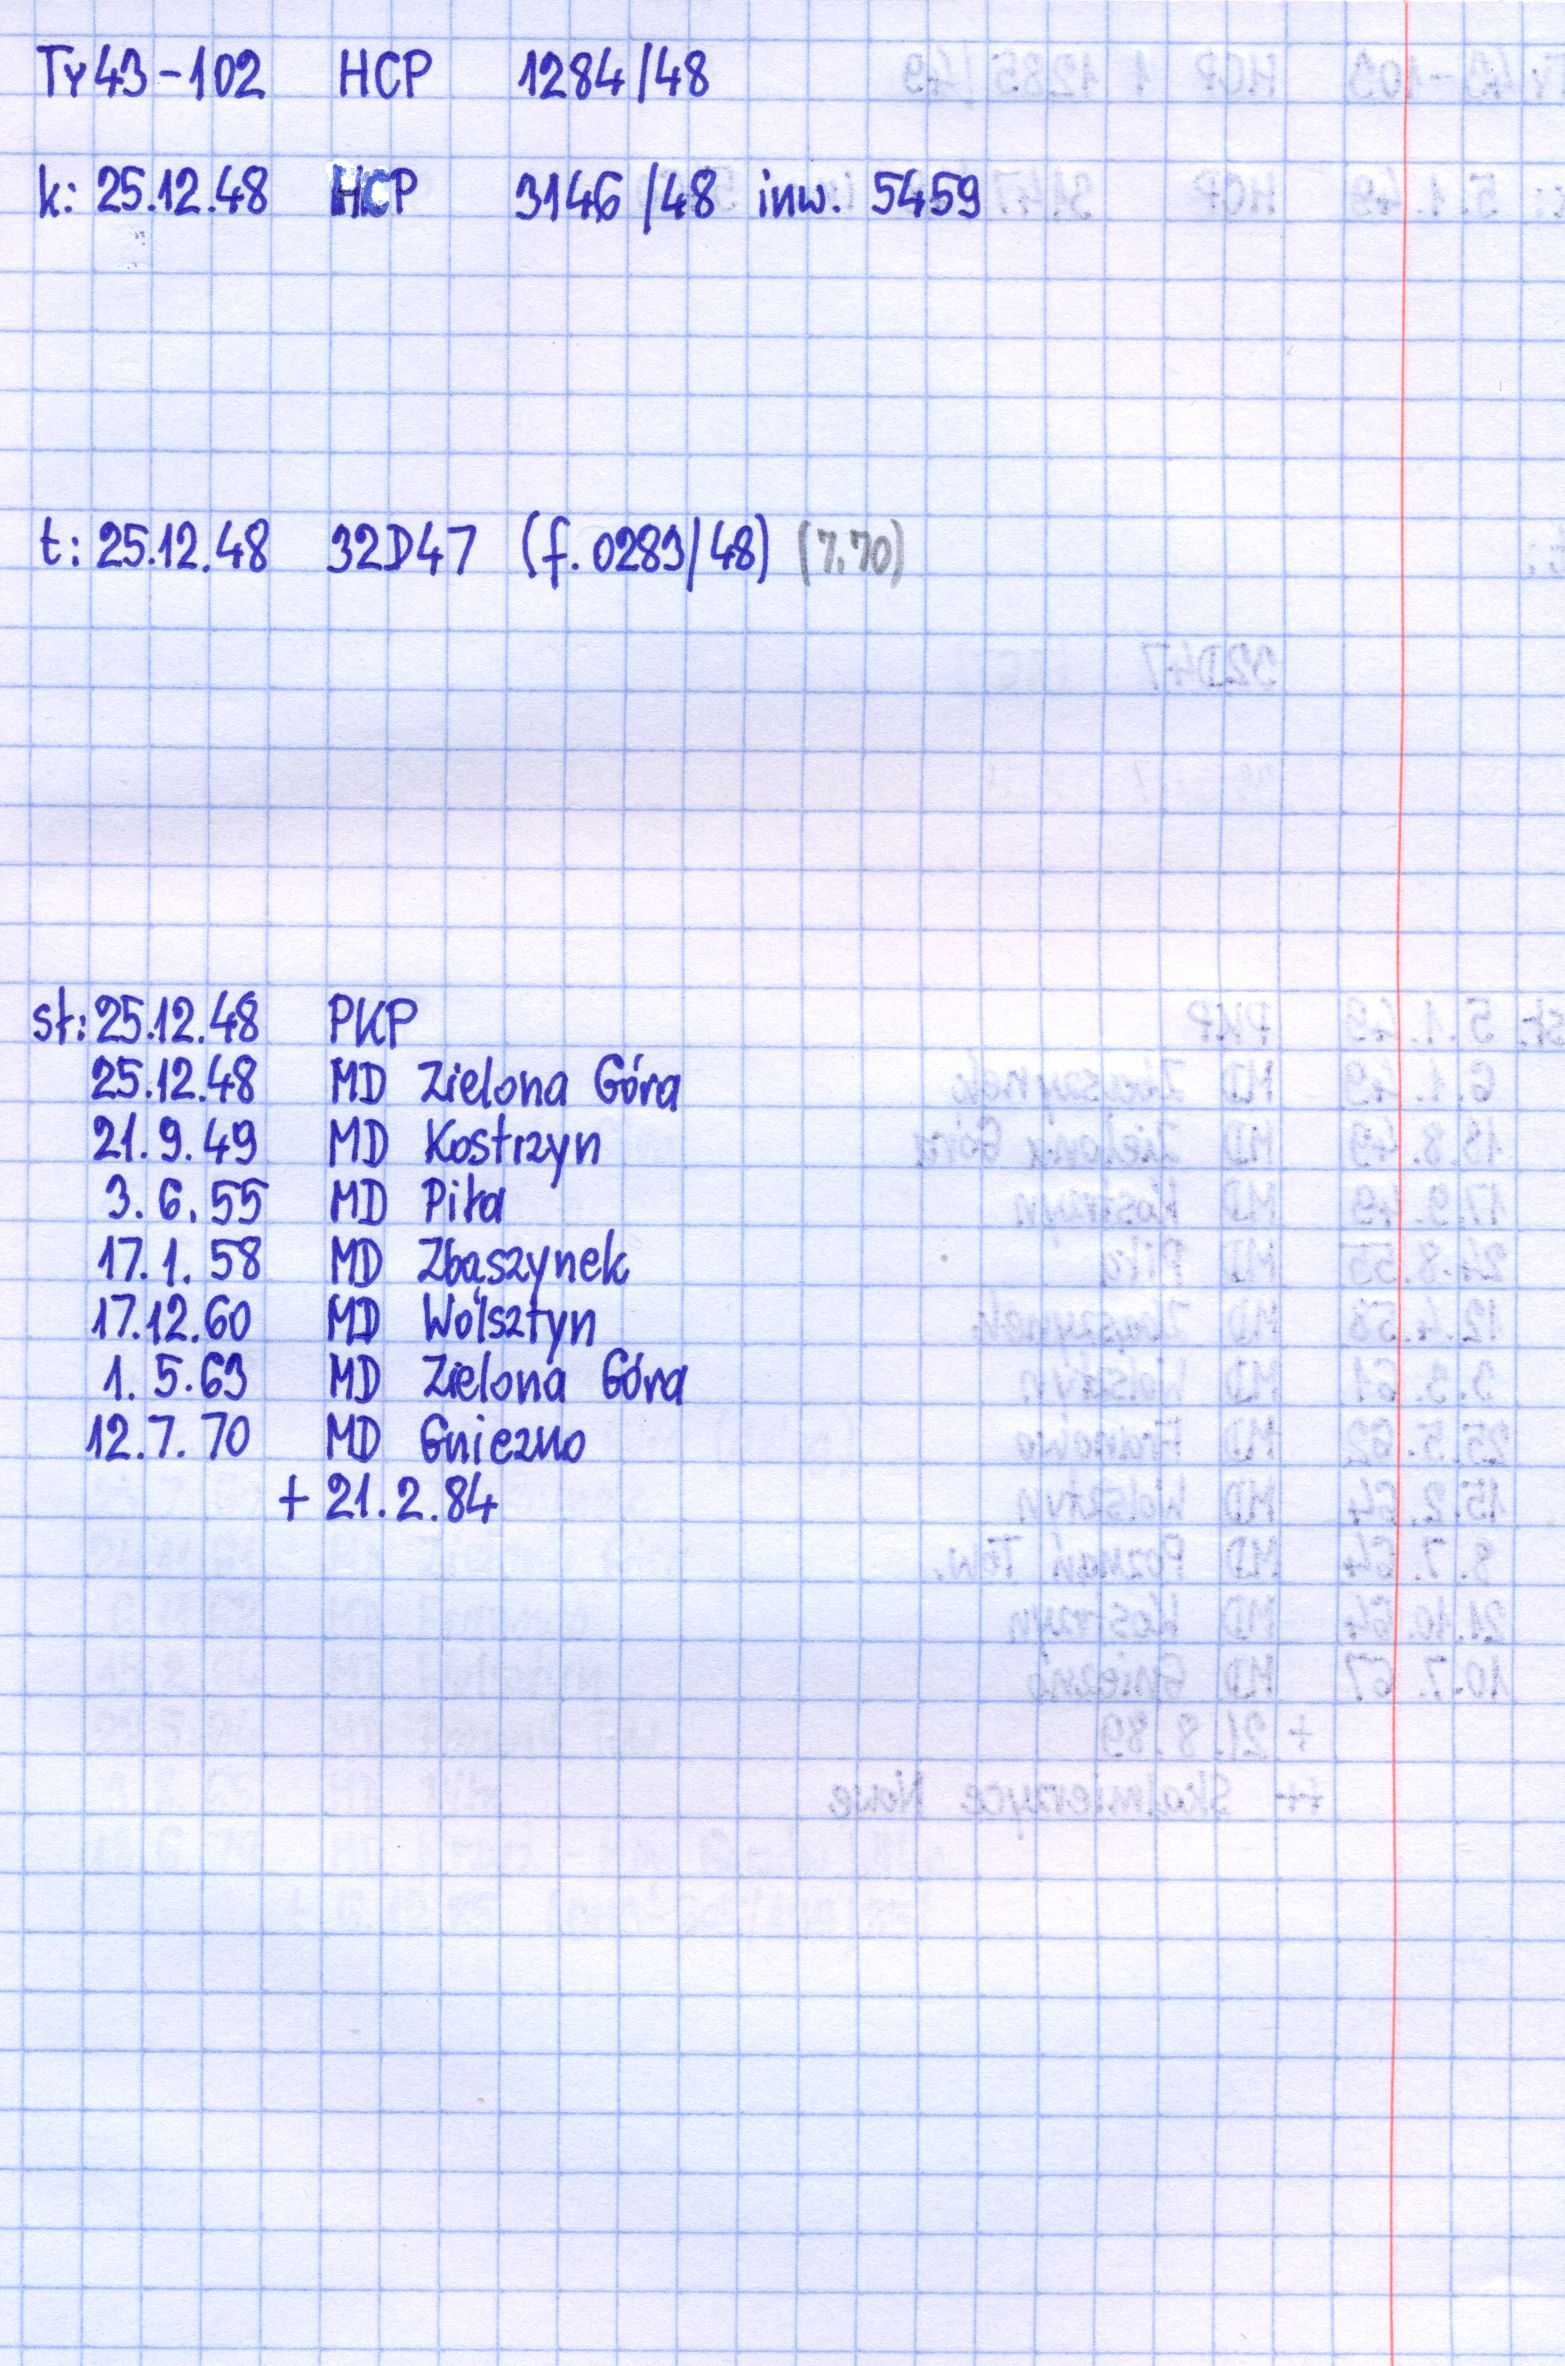 Ty43-102 HCP 1284/48
k: 25.12.48 HCP 3146/48 inw. 5459
t: 25.12.48 32D47 (f. 0283/48) (7.70)
st: 25.12.48 PKP
25.12.48 MD Zielona Góra
21.9.49 MD Kostrzyn
3.6.55 MD Piła
17.1.58 MD Zbąszynek
17.12.60 MD Wolsztyn
1.5.63 MD Zielona Góra
12.7.70 MD Gniezno
+ 21.2.84